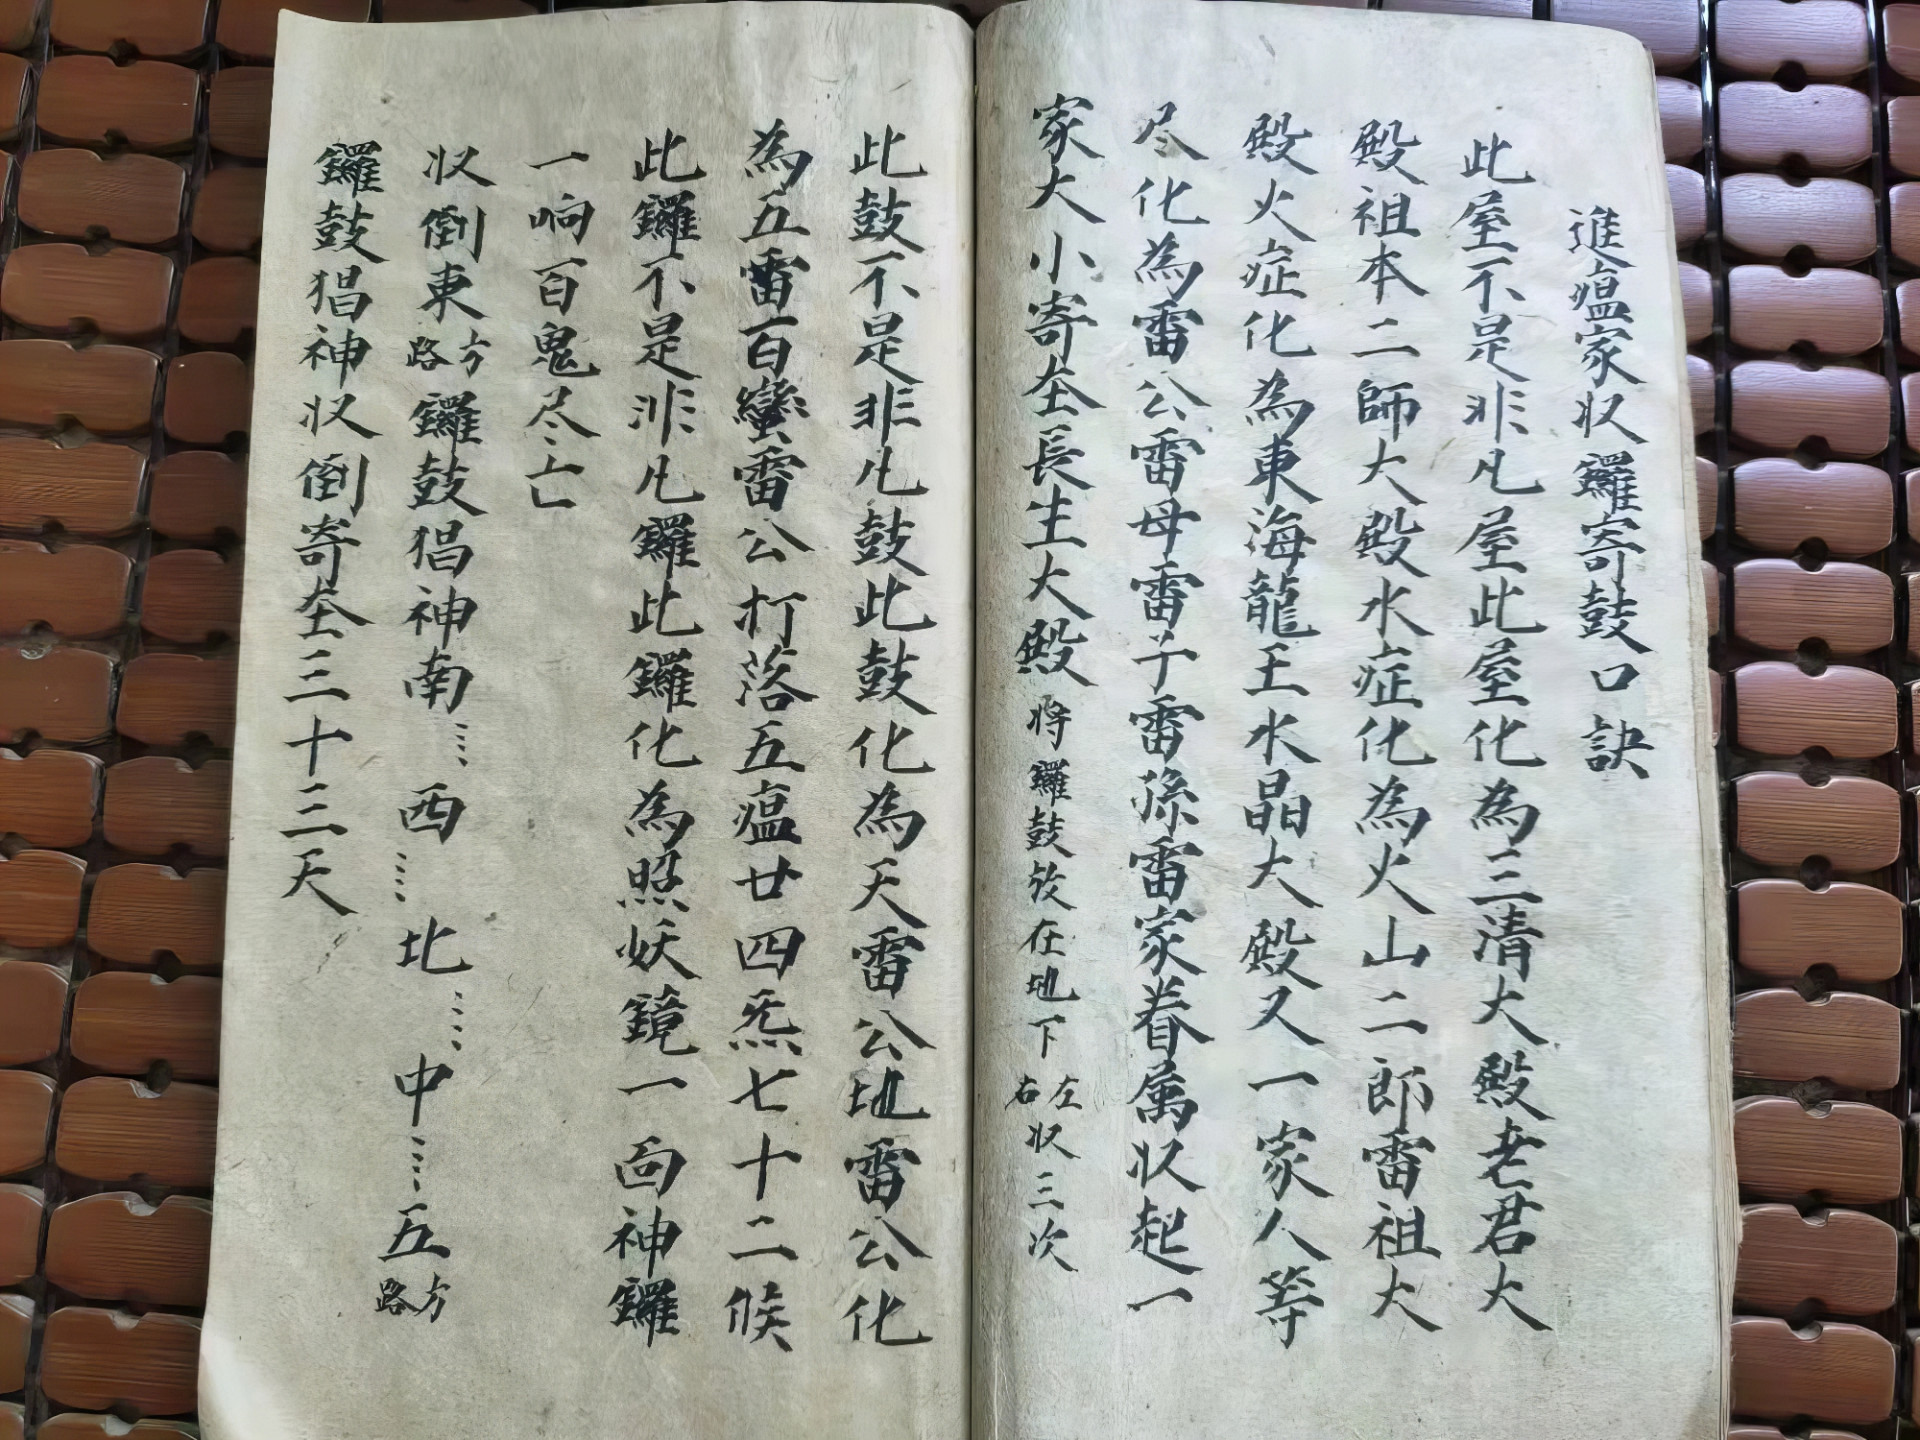 進瘟家収鑼寄鼓口訣
此屋不是非凡屋此屋化為三清大殿老君大
殿祖本二師大殿水症化為火山二郎雷祖大
殿火症化為東海龍王水晶大殿又一家人等
尽化為雷公雷母雷子雷孫雷家眷属収起一
家大小寄在長生大殿 将鑼鼓放在地下 左右収三次
此鼓不是非凡鼓此鼓化為天雷公地雷公化
為五雷百蠻雷公打落五瘟廿四炁七十二候
此鑼不是非凡鑼此鑼化為照妖鏡一向神鑼
一响百鬼尽亡
収倒東方路鑼鼓猖神南……西……北……中……五方路
鑼鼓猖神収倒寄在三十三天